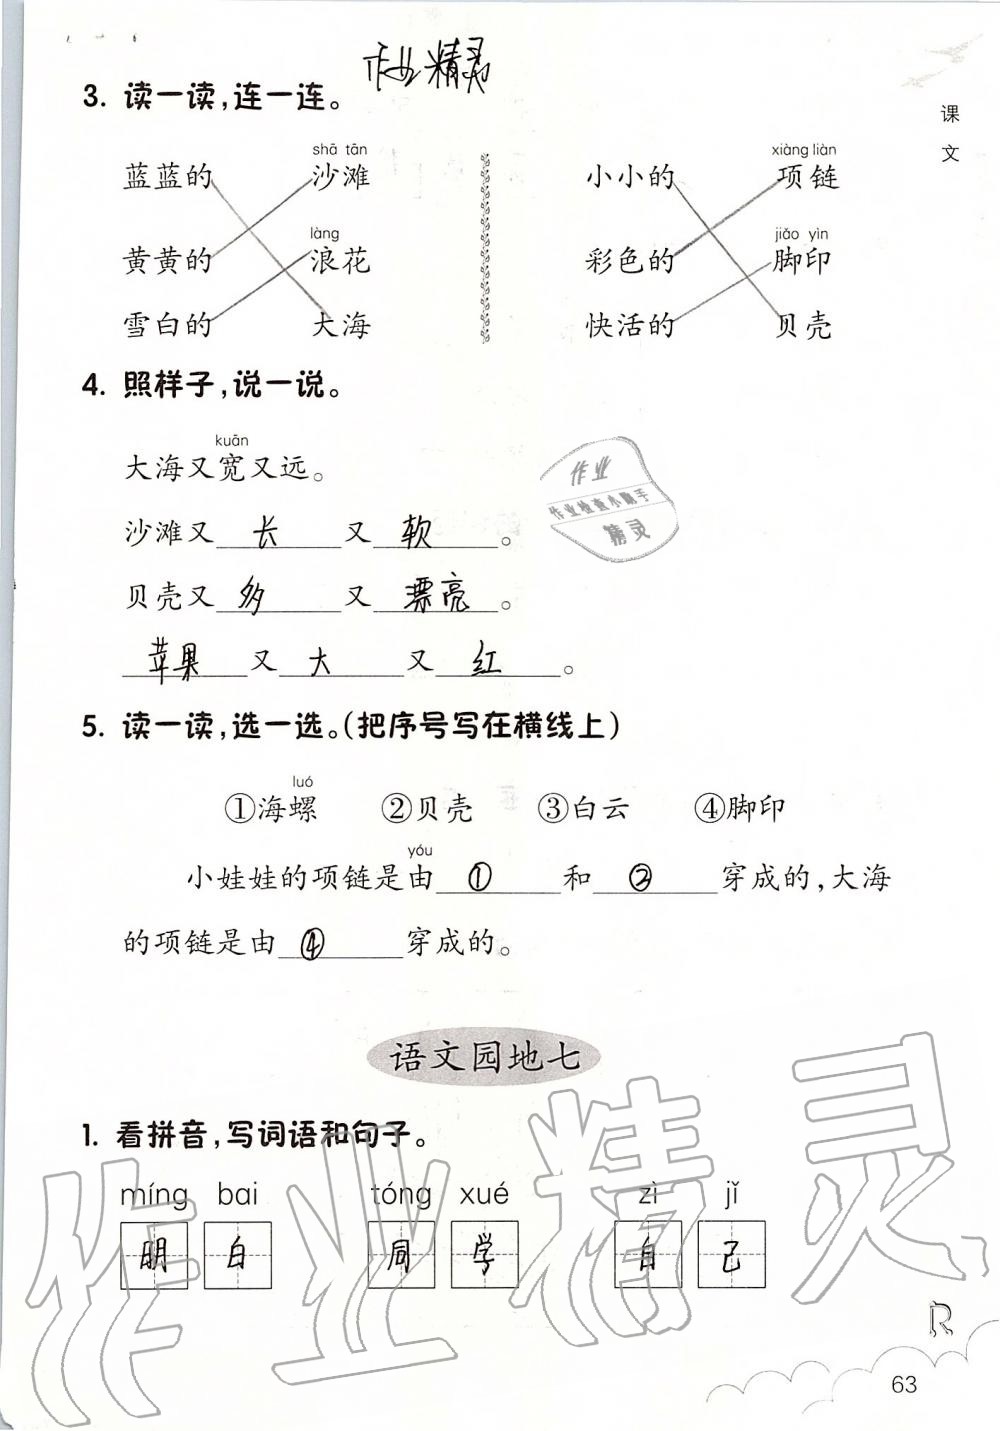 作业精灵
3. 读一读,连一连。
课文
shā tān
xiàng liàn
蓝蓝的 沙滩 小小的 项链
làng
jiǎo yìn
黄黄的 浪花 彩色的 脚印
雪白的 大海 快活的 贝壳
4. 照样子,说一说。
kuān
大海又宽又远。
沙滩又 长 又 软 。
贝壳又 多 又 漂亮 。
苹果 又 大 又 红 。
作业
作业检查小助手
精灵
5. 读一读,选一选。(把序号写在横线上)
luó
①海螺 ②贝壳 ③白云 ④脚印
yóu
小娃娃的项链是由 ① 和 ② 穿成的,大海
的项链是由 ④ 穿成的。
语文园地七
1. 看拼音,写词语和句子。
míng bai tóng xué zì jǐ
明 白 同 学 自 己
作业精灵
R
63